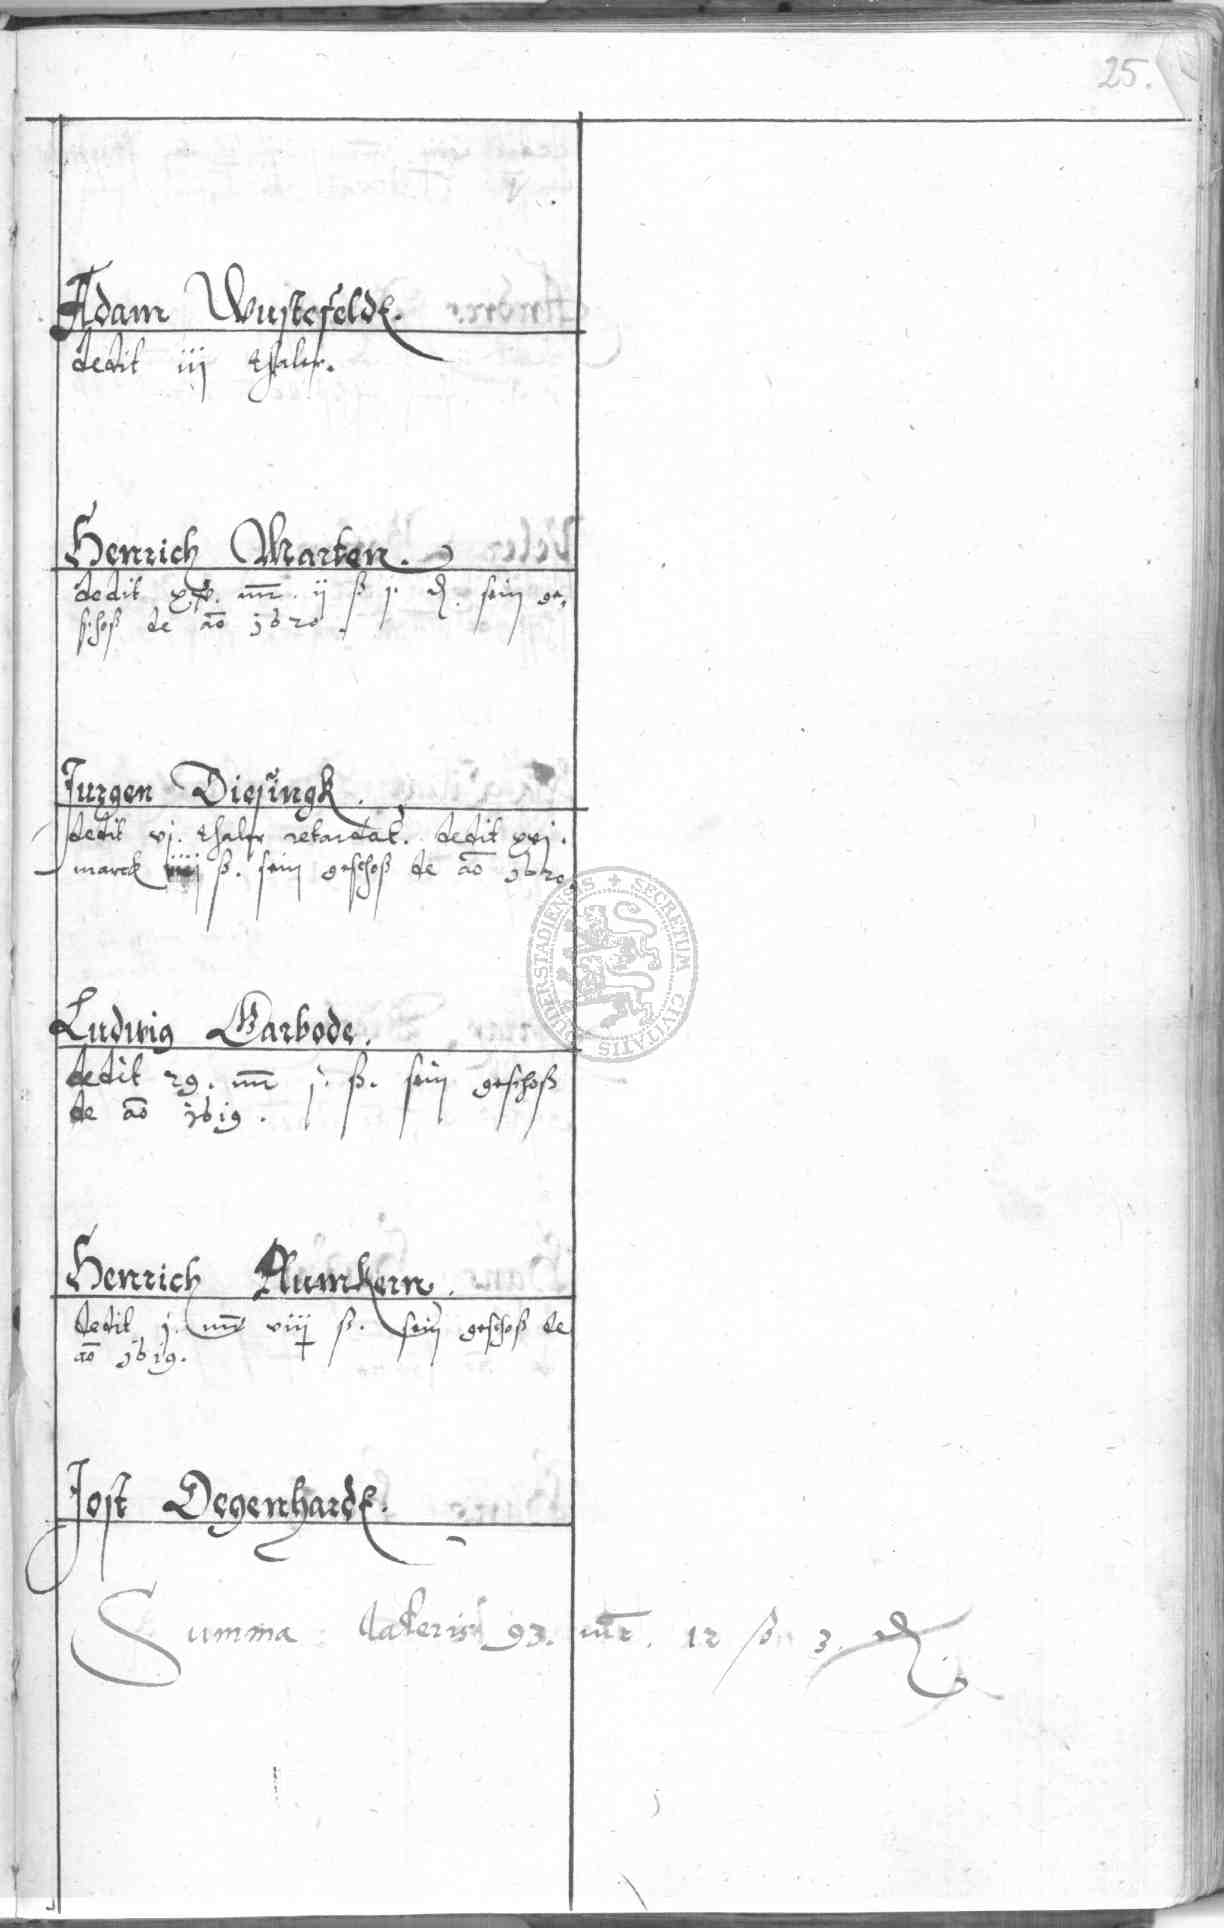 25.
Adam Wustefelde.
dedit iij thaler.
Henrich Marten.
dedit mr. ij ß j. ₰. sein ge-
schoß de ao 1620.
Jurgen Diesingk.
dedit vj. thaler retardat. dedit xvj.
marck iiij ß. sein geschoß de ao 1620.
Ludwig Barbode.
dedit 29. mr j. ß. sein geschoß
de ao 1619.
Henrich Aumkern.
dedit j. mr viij ß. sein geschoß de
ao 1619.
Jost Degenharde.
Summa lateris 93. mr. 12 ß 3. ₰.
SECRETUM CIVITATIS DUDERSTADIENSIS